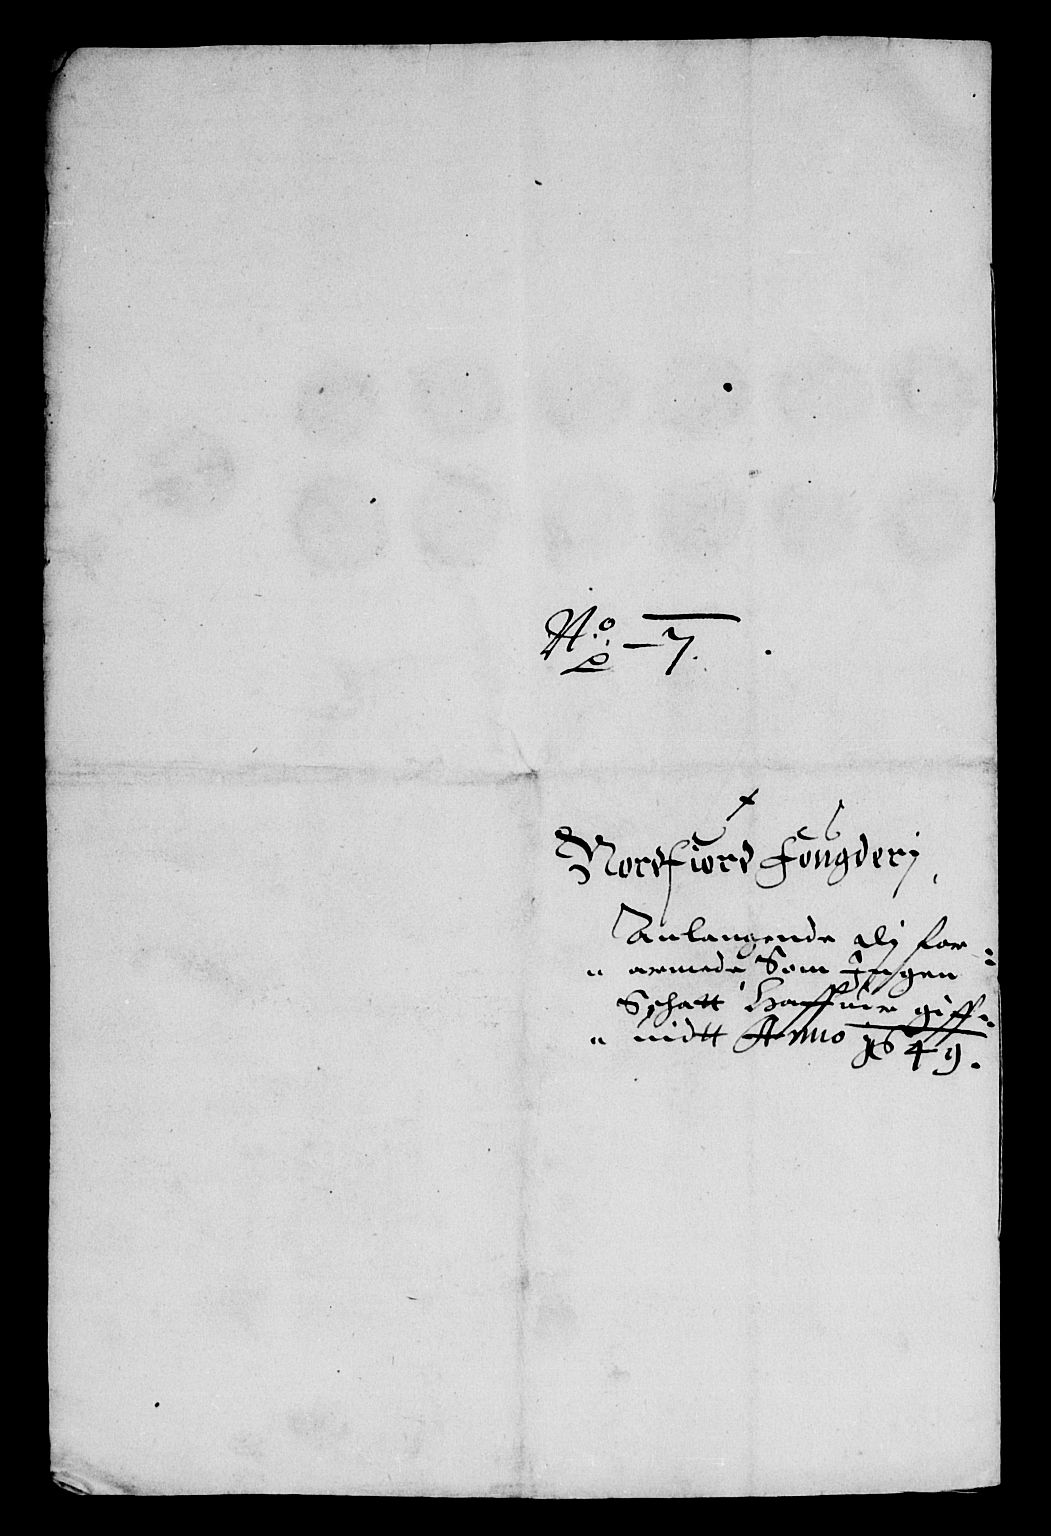 No. – 7.
Nordfiord Fougderj
Anlangende dij for:
armede Som Ingen
Schatt Haffuer giff:
uidtt Anno 1649.